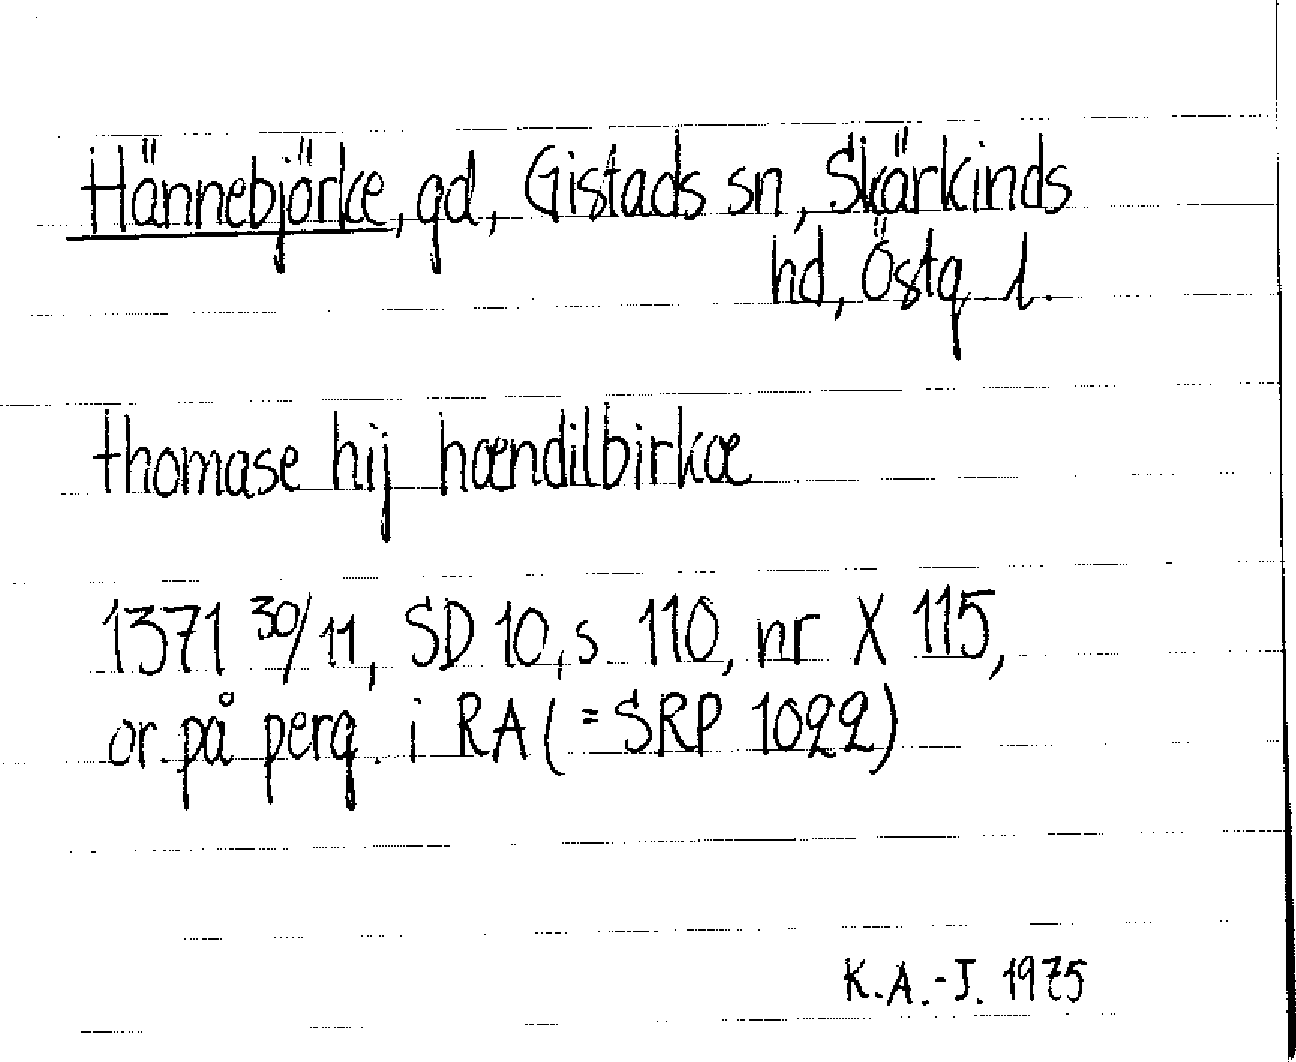 Hännebjörke, gd, Gistads sn, Skärkinds
hd, Östg l.
thomase hij hændilbirkæ
1371 30/11, SD 10, s 110, nr X 115,
or på perg. i RA (=SRP 1022)
K.A.-J. 1975